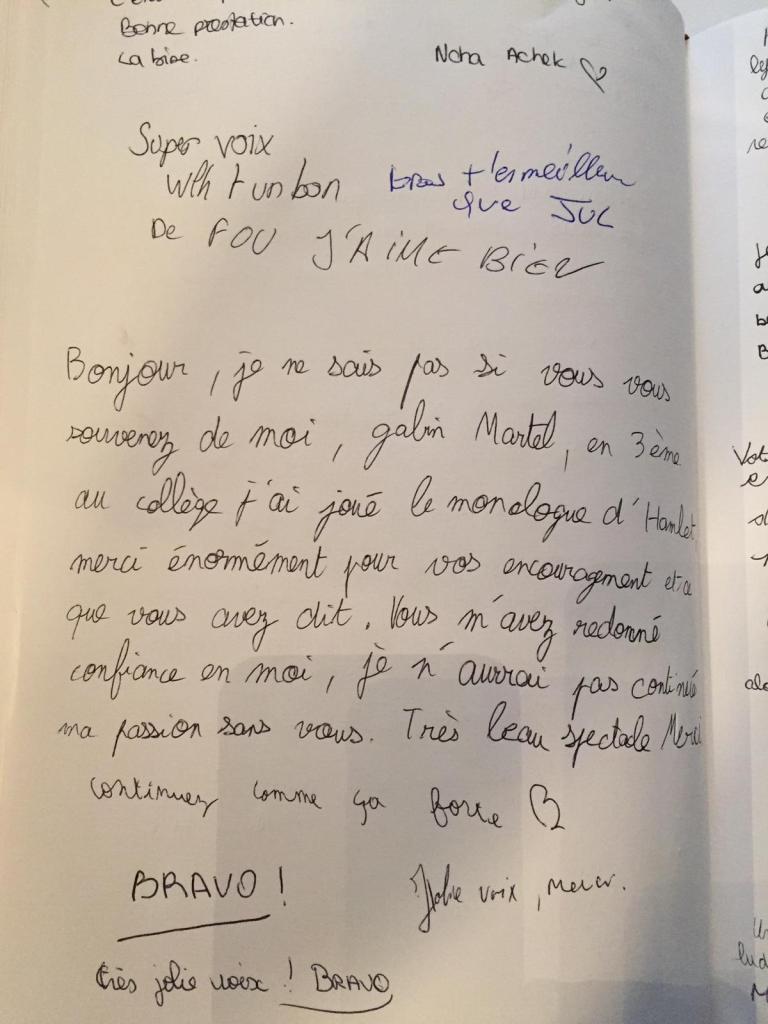 Bonne prestation.
La bise.
Noha Achek
Super voix
Wlh t un bon
De FOU J'AIME BIEN
t'es meilleur
que JUL
Bonjour, je ne sais pas si vous vous
souvenez de moi, gabin Martel, en 3ème
au collège j'ai joué le monologue d'Hamlet
merci énormément pour vos encouragement et ce
que vous avez dit. Vous m'avez redonné
confiance en moi, je n'aurrai pas continué
ma passion sans vous. Très beau spectacle Merci
continuez comme ça force
BRAVO !
Jolie voix, merci.
très jolie voix ! BRAVO
Vot